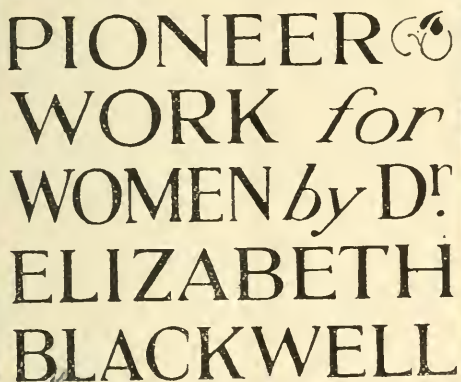 PIONEER
WORK for
WOMEN by Dr.
ELIZABETH
BLACKWELL